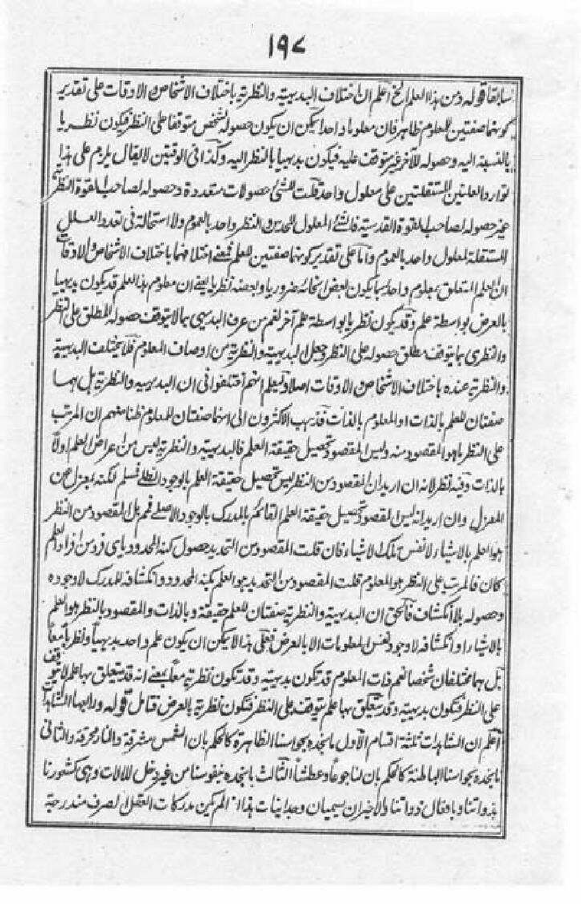 ١٩٧
سابقا قوله ومن هذا العلم الخ اعلم ان اختلاف البديهية والنظرية باختلاف الاشخاص او الاوقات على تقدير
كونهما صفتين للمعلوم ظاهر فان معلوما واحدا يمكن ان يكون حصوله لشخص متوقفا على النظر فيكون نظريا
بالنسبة اليه وحصوله للآخر غير متوقف عليه فيكون بديهيا بالنظر اليه وكذا في الوقتين لا يقال يلزم على هذا
توارد العلتين المستقلتين على معلول واحد قلت للشئ حصولات متعددة وحصوله لصاحب القوة النظرية
غير حصوله لصاحب القوة القدسية فالشئ المعلول للحدس والنظر واحد بالعموم ولا استحالة في تعدد العلل
المستقلة لمعلول واحد بالعموم واما على تقدير كونهما صفتين للعلم فمعنى اختلافهما باختلاف الاشخاص والاوقات
ان العلم المتعلق بمعلوم واحد ربما يكون بعض انحائه ضروريا وبعضه نظريا بمعنى ان معلوم هذا العلم قد يكون بديهيا
بالعرض بواسطة علم وقد يكون نظريا بواسطة علم آخر نعم من عرف البديهي بما لا يتوقف حصوله المطلق على النظر
والنظري بما يتوقف مطلق حصوله على النظر وجعل البديهية والنظرية من اوصاف المعلوم فلا يختلف البديهية
والنظرية عنده باختلاف الاشخاص والاوقات اصلا وليعلم انهم اختلفوا في ان البديهية والنظرية بل هما
صفتان للعلم بالذات او للمعلوم بالذات فذهب الاكثرون الى انهما صفتان للمعلوم ظنا منهم ان المرتب
على النظر ما هو المقصود منه وليس المقصود تحصيل حقيقة العلم فالبديهية والنظرية ليس من اعراض العلم اولا
بالذات وفيه نظر لانه ان اريد ان المقصود من النظر ليس تحصيل حقيقة العلم بالوجود الظلي فمسلم لكنه بمعزل عن
المعزل وان اريد انه ليس المقصود تحصيل حقيقة العلم القائم بالمدرك بالوجود الاصلي فمم بل المقصود من النظر
هو العلم بالاشياء لا نفس تلك الاشياء فان قلت المقصود من التحديد حصول كنه المحدود باي فرد من افراد العلم
كان فالمرتب على النظر هو المعلوم قلت المقصود من التحديد هو العلم بكنه المحدود وانكشافه للمدرك لا وجوده
وحصوله بلا انكشاف فالحق ان البديهية والنظرية صفتان للعلم حقيقة وبالذات والمقصود بالنظر هو العلم
بالاشياء وانكشافها لا وجود نفس المعلومات الا بالعرض فعلى هذا لا يمكن ان يكون علم واحد بديهيا ونظريا معا
بل هما مختلفان شخصا نعم ذات المعلوم قد يكون بديهية وقد تكون نظرية معا بمعنى انه قد يتعلق بها علم لا يتوقف
على النظر فتكون بديهية وقد يتعلق بها علم يتوقف على النظر فتكون نظرية بالعرض فتامل قوله ورابعها المشاهدات
اعلم ان المشاهدات ثلثة اقسام الاول ما نجده بحواسنا الظاهرة كالحكم بان الشمس مشرقة والنار محرقة والثاني
ما نجده بحواسنا الباطنة كالحكم بان لنا جوعا وعطشا الثالث ما نجده بنفوسنا من غير دخل للآلات وهي كشعورنا
بذواتنا وبافعال ذواتنا والاخيران يسميان وجدانيات هذا اذا لم يكن مدركات العقل الصرف مندرجة